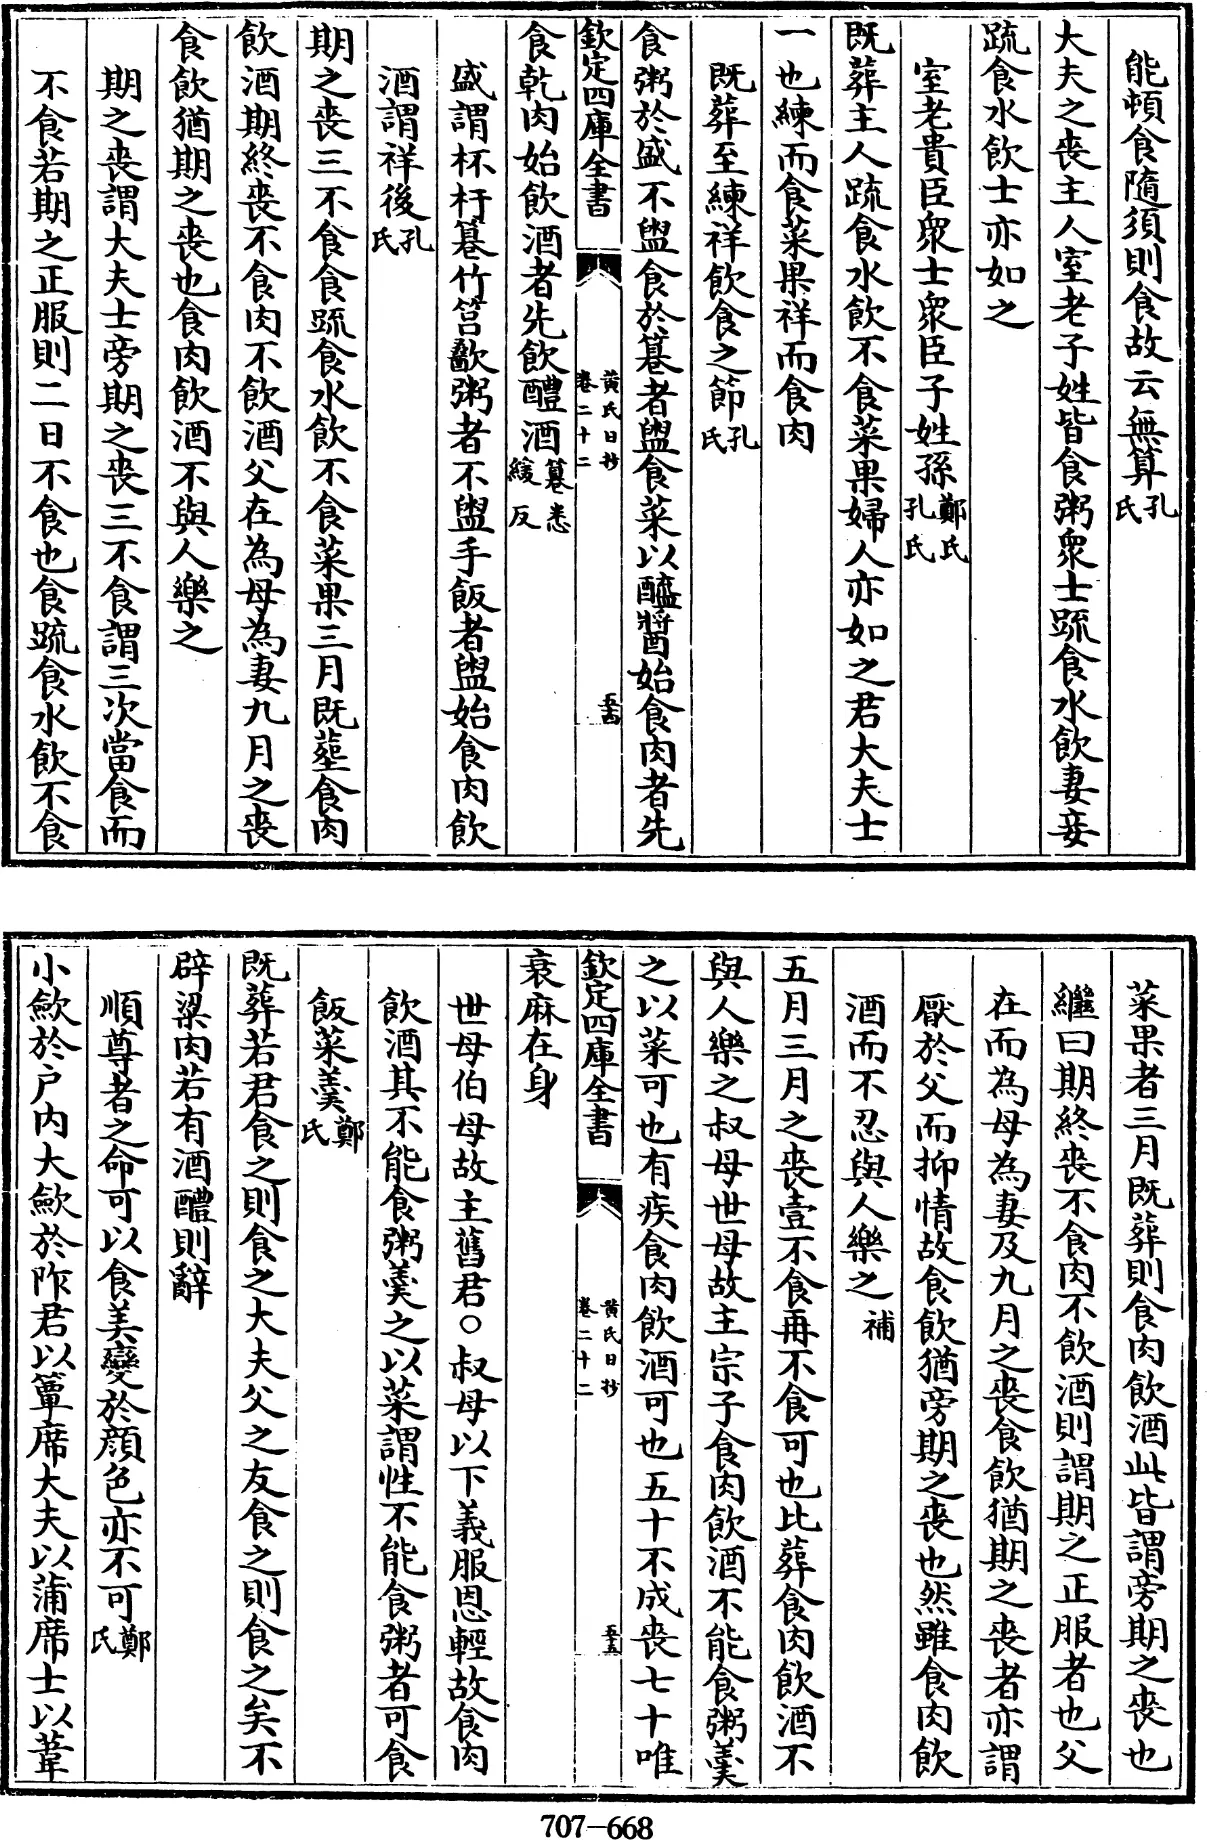 能頓食隨須則食故云無算孔氏
大夫之喪主人室老子姓皆食粥衆士疏食水飲妻妾
疏食水飲士亦如之
室老貴臣衆士衆臣子姓孫鄭氏孔氏
既葬主人疏食水飲不食菜果婦人亦如之君大夫士
一也練而食菜果祥而食肉
既葬至練祥飲食之節孔氏
食粥於盛不盥食於篹者盥食菜以醯醬始食肉者先
欽定四庫全書
黃氏日抄
卷二十二
五十四
食乾肉始飲酒者先飲醴酒篹悉緩反
盛謂杯杅篹竹筥歠粥者不盥手飯者盥始食肉飲
酒謂祥後孔氏
期之喪三不食食疏食水飲不食菜果三月既葬食肉
飲酒期終喪不食肉不飲酒父在為母為妻九月之喪
食飲猶期之喪也食肉飲酒不與人樂之
期之喪謂大夫士旁期之喪三不食謂三次當食而
不食若期之正服則二日不食也食疏食水飲不食
菜果者三月既葬則食肉飲酒此皆謂旁期之喪也
繼曰期終喪不食肉不飲酒則謂期之正服者也父
在而為母為妻及九月之喪食飲猶期之喪者亦謂
厭於父而抑情故食飲猶旁期之喪也然雖食肉飲
酒而不忍與人樂之補
五月三月之喪壹不食再不食可也比葬食肉飲酒不
與人樂之叔母世母故主宗子食肉飲酒不能食粥羹
之以菜可也有疾食肉飲酒可也五十不成喪七十唯
欽定四庫全書
黃氏日抄
卷二十二
五十五
衰麻在身
世母伯母故主舊君○叔母以下義服恩輕故食肉
飲酒其不能食粥羹之以菜謂性不能食粥者可食
飯菜羹鄭氏
既葬若君食之則食之大夫父之友食之則食之矣不
辟粱肉若有酒醴則辭
順尊者之命可以食美變於顔色亦不可鄭氏
小歛於户内大歛於阼君以簟席大夫以蒲席士以葦
707-668